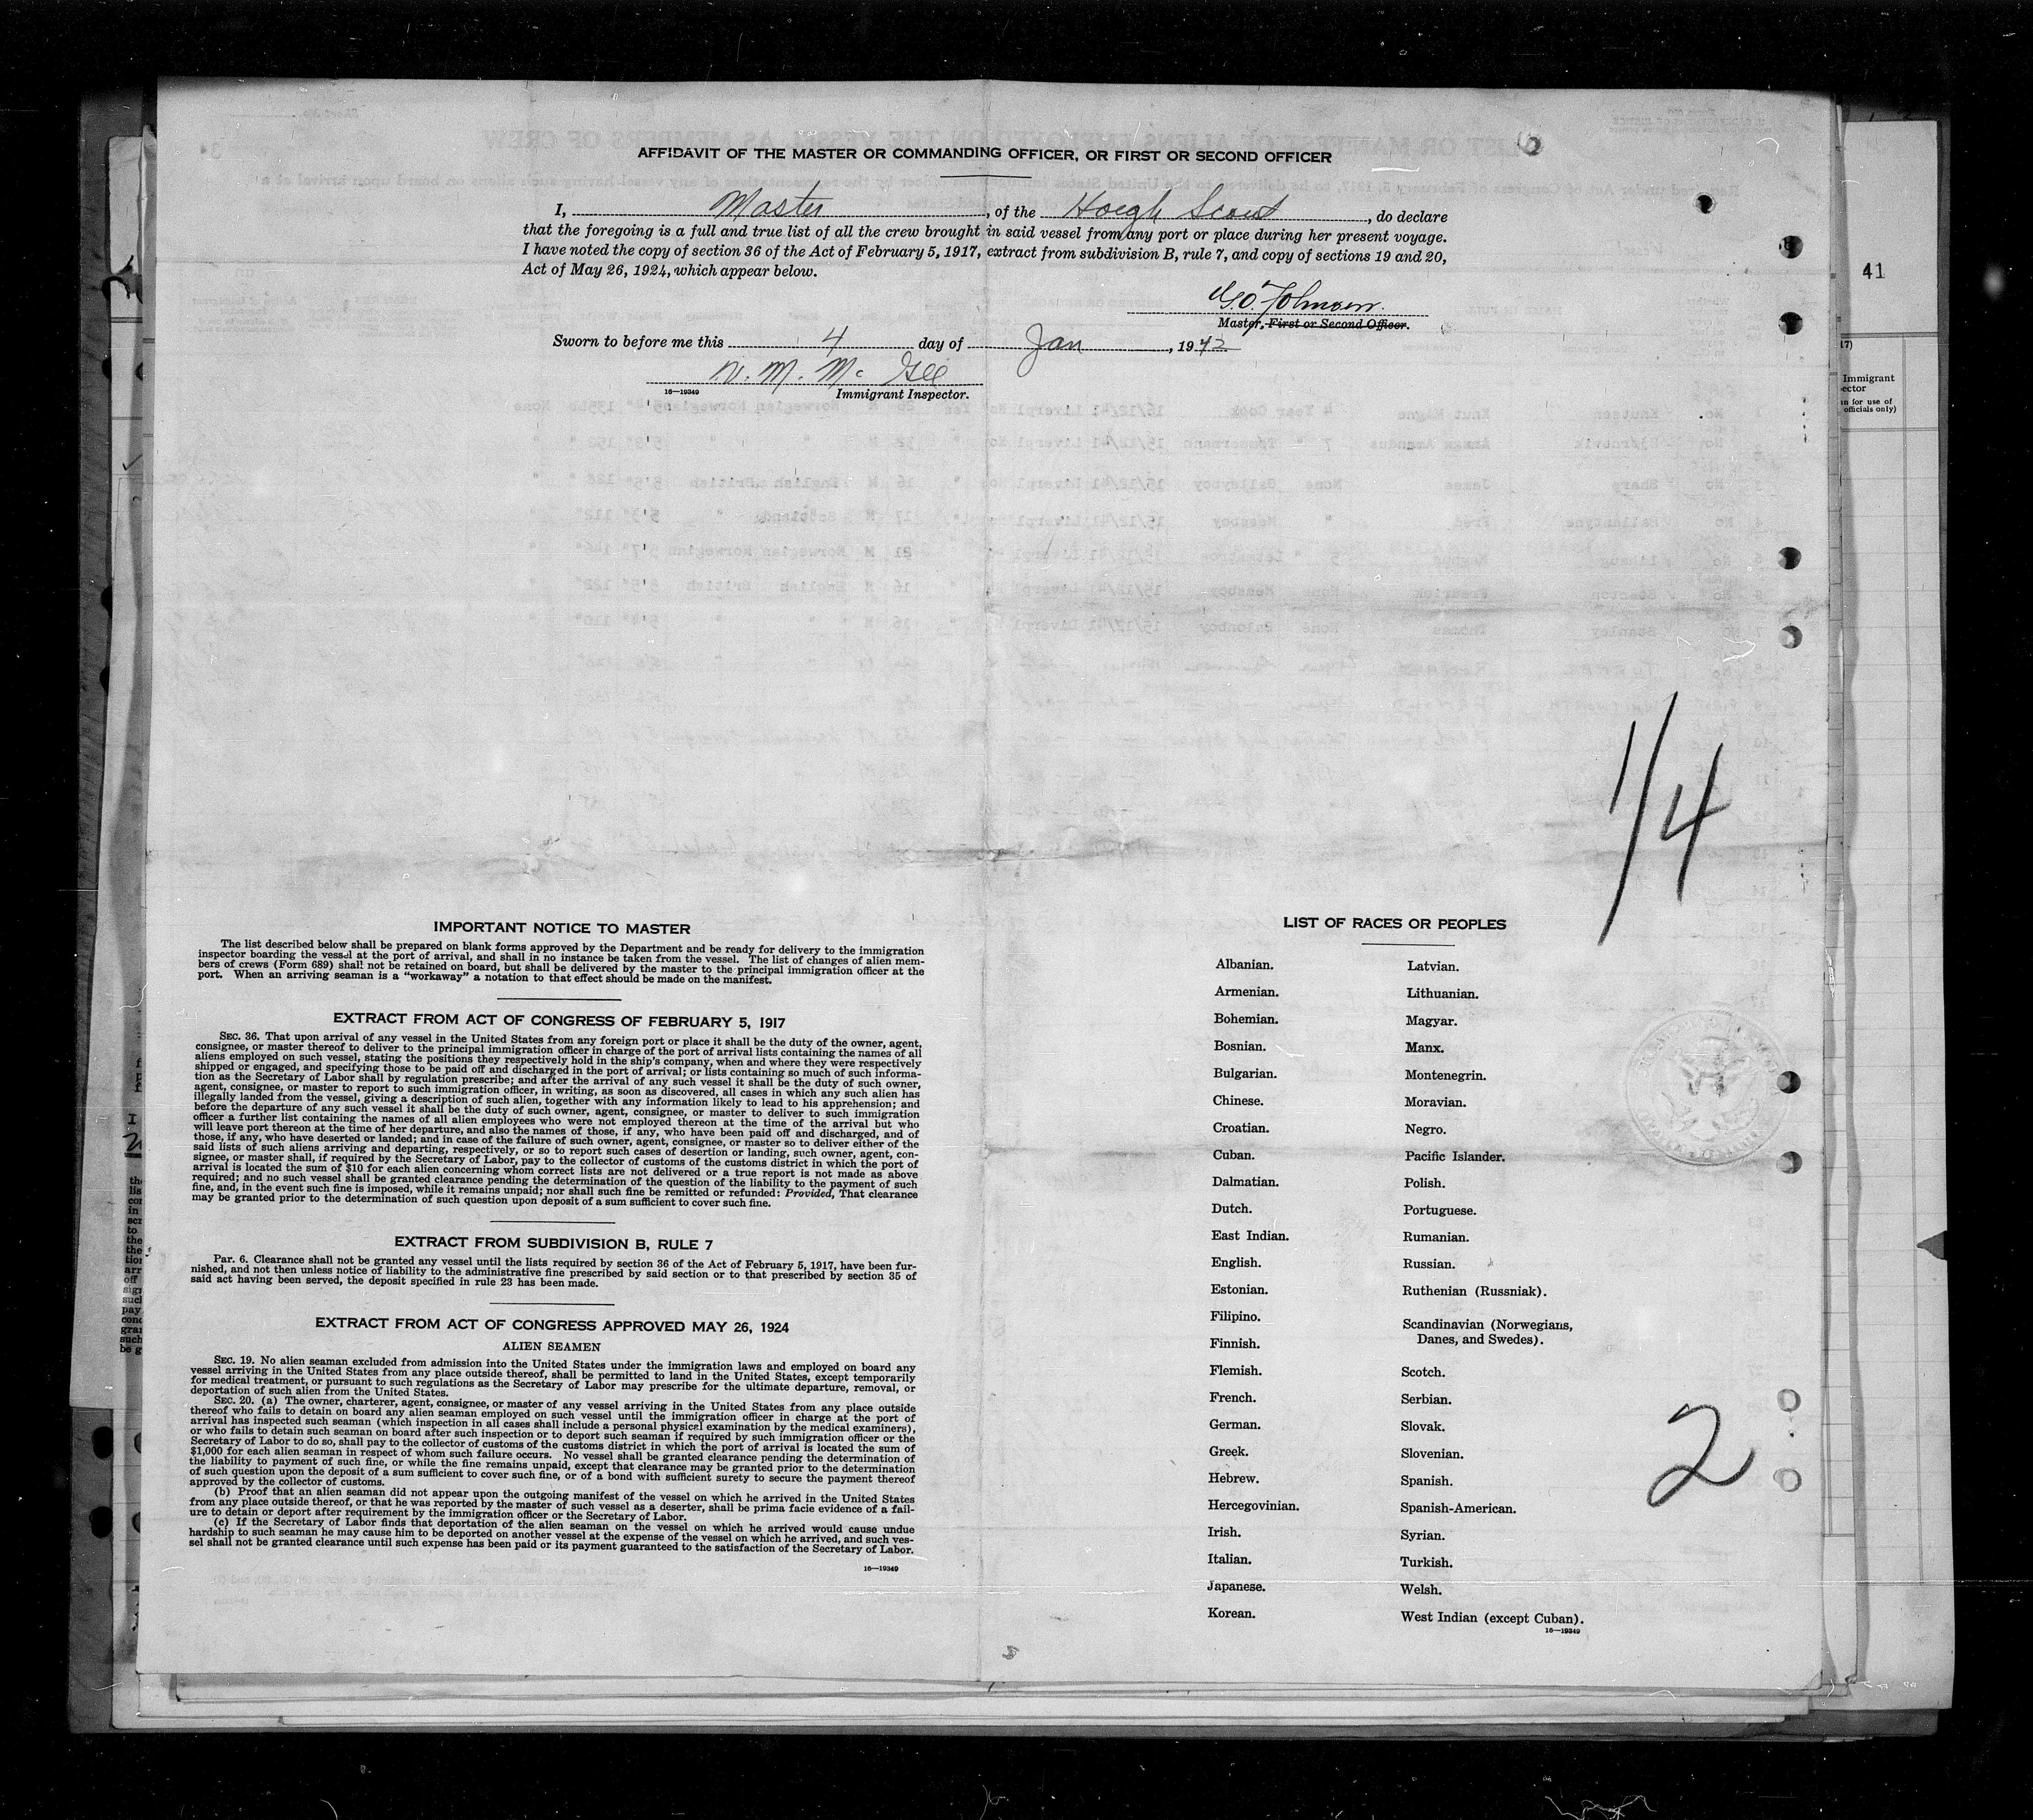 AFFIDAVIT OF THE MASTER OR COMMANDING OFFICER, OR FIRST OR SECOND OFFICER
I, Master, of the Hoegh Scout, do declare
that the foregoing is a full and true list of all the crew brought in said vessel from any port or place during her present voyage.
I have noted the copy of section 36 of the Act of February 5, 1917, extract from subdivision B, rule 7, and copy of sections 19 and 20,
Act of May 26, 1924, which appear below.
Johnsen
Master, First or Second Officer.
Sworn to before me this 4 day of Jan, 1942
N. M. Mc Gee
16—19349 Immigrant Inspector.
41
17)
Immigrant
ector
officials only)
1/4
IMPORTANT NOTICE TO MASTER
The list described below shall be prepared on blank forms approved by the Department and be ready for delivery to the immigration
inspector boarding the vessel at the port of arrival, and shall in no instance be taken from the vessel. The list of changes of alien mem-
bers of crews (Form 689) shall not be retained on board, but shall be delivered by the master to the principal immigration officer at the
port. When an arriving seaman is a “workaway” a notation to that effect should be made on the manifest.
EXTRACT FROM ACT OF CONGRESS OF FEBRUARY 5, 1917
SEC. 36. That upon arrival of any vessel in the United States from any foreign port or place it shall be the duty of the owner, agent,
consignee, or master thereof to deliver to the principal immigration officer in charge of the port of arrival lists containing the names of all
aliens employed on such vessel, stating the positions they respectively hold in the ship's company, when and where they were respectively
shipped or engaged, and specifying those to be paid off and discharged in the port of arrival; or lists containing so much of such informa-
tion as the Secretary of Labor shall by regulation prescribe; and after the arrival of any such vessel it shall be the duty of such owner,
agent, consignee, or master to report to such immigration officer, in writing, as soon as discovered, all cases in which any such alien has
illegally landed from the vessel, giving a description of such alien, together with any information likely to lead to his apprehension; and
before the departure of any such vessel it shall be the duty of such owner, agent, consignee, or master to deliver to such immigration
officer a further list containing the names of all alien employees who were not employed thereon at the time of the arrival but who
will leave port thereon at the time of her departure, and also the names of those, if any, who have been paid off and discharged, and of
those, if any, who have deserted or landed; and in case of the failure of such owner, agent, consignee, or master so to deliver either of the
said lists of such aliens arriving and departing, respectively, or so to report such cases of desertion or landing, such owner, agent, con-
signee, or master shall, if required by the Secretary of Labor, pay to the collector of customs of the customs district in which the port of
arrival is located the sum of $10 for each alien concerning whom correct lists are not delivered or a true report is not made as above
required; and no such vessel shall be granted clearance pending the determination of the question of the liability to the payment of such
fine, and, in the event such fine is imposed, while it remains unpaid; nor shall such fine be remitted or refunded: Provided, That clearance
may be granted prior to the determination of such question upon deposit of a sum sufficient to cover such fine.
EXTRACT FROM SUBDIVISION B, RULE 7
Par. 6. Clearance shall not be granted any vessel until the lists required by section 36 of the Act of February 5, 1917, have been fur-
nished, and not then unless notice of liability to the administrative fine prescribed by said section or to that prescribed by section 35 of
said act having been served, the deposit specified in rule 23 has been made.
EXTRACT FROM ACT OF CONGRESS APPROVED MAY 26, 1924
ALIEN SEAMEN
SEC. 19. No alien seaman excluded from admission into the United States under the immigration laws and employed on board any
vessel arriving in the United States from any place outside thereof, shall be permitted to land in the United States, except temporarily
for medical treatment, or pursuant to such regulations as the Secretary of Labor may prescribe for the ultimate departure, removal, or
deportation of such alien from the United States.
SEC. 20. (a) The owner, charterer, agent, consignee, or master of any vessel arriving in the United States from any place outside
thereof who fails to detain on board any alien seaman employed on such vessel until the immigration officer in charge at the port of
arrival has inspected such seaman (which inspection in all cases shall include a personal physical examination by the medical examiners),
or who fails to detain such seaman on board after such inspection or to deport such seaman if required by such immigration officer or the
Secretary of Labor to do so, shall pay to the collector of customs of the customs district in which the port of arrival is located the sum of
$1,000 for each alien seaman in respect of whom such failure occurs. No vessel shall be granted clearance pending the determination of
the liability to the payment of such fine, or while the fine remains unpaid, except that clearance may be granted prior to the determination
of such question upon the deposit of a sum sufficient to cover such fine, or of a bond with sufficient surety to secure the payment thereof
approved by the collector of customs.
(b) Proof that an alien seaman did not appear upon the outgoing manifest of the vessel on which he arrived in the United States
from any place outside thereof, or that he was reported by the master of such vessel as a deserter, shall be prima facie evidence of a fail-
ure to detain or deport after requirement by the immigration officer or the Secretary of Labor.
(c) If the Secretary of Labor finds that deportation of the alien seaman on the vessel on which he arrived would cause undue
hardship to such seaman he may cause him to be deported on another vessel at the expense of the vessel on which he arrived, and such ves-
sel shall not be granted clearance until such expense has been paid or its payment guaranteed to the satisfaction of the Secretary of Labor.
16—19349
LIST OF RACES OR PEOPLES
Albanian.
Armenian.
Bohemian.
Bosnian.
Bulgarian.
Chinese.
Croatian.
Cuban.
Dalmatian.
Dutch.
East Indian.
English.
Estonian.
Filipino.
Finnish.
Flemish.
French.
German.
Greek.
Hebrew.
Hercegovinian.
Irish.
Italian.
Japanese.
Korean.
Latvian.
Lithuanian.
Magyar.
Manx.
Montenegrin.
Moravian.
Negro.
Pacific Islander.
Polish.
Portuguese.
Rumanian.
Russian.
Ruthenian (Russniak).
Scandinavian (Norwegians,
Danes, and Swedes).
Scotch.
Serbian.
Slovak.
Slovenian.
Spanish.
Spanish-American.
Syrian.
Turkish.
Welsh.
West Indian (except Cuban).
16—19349
2